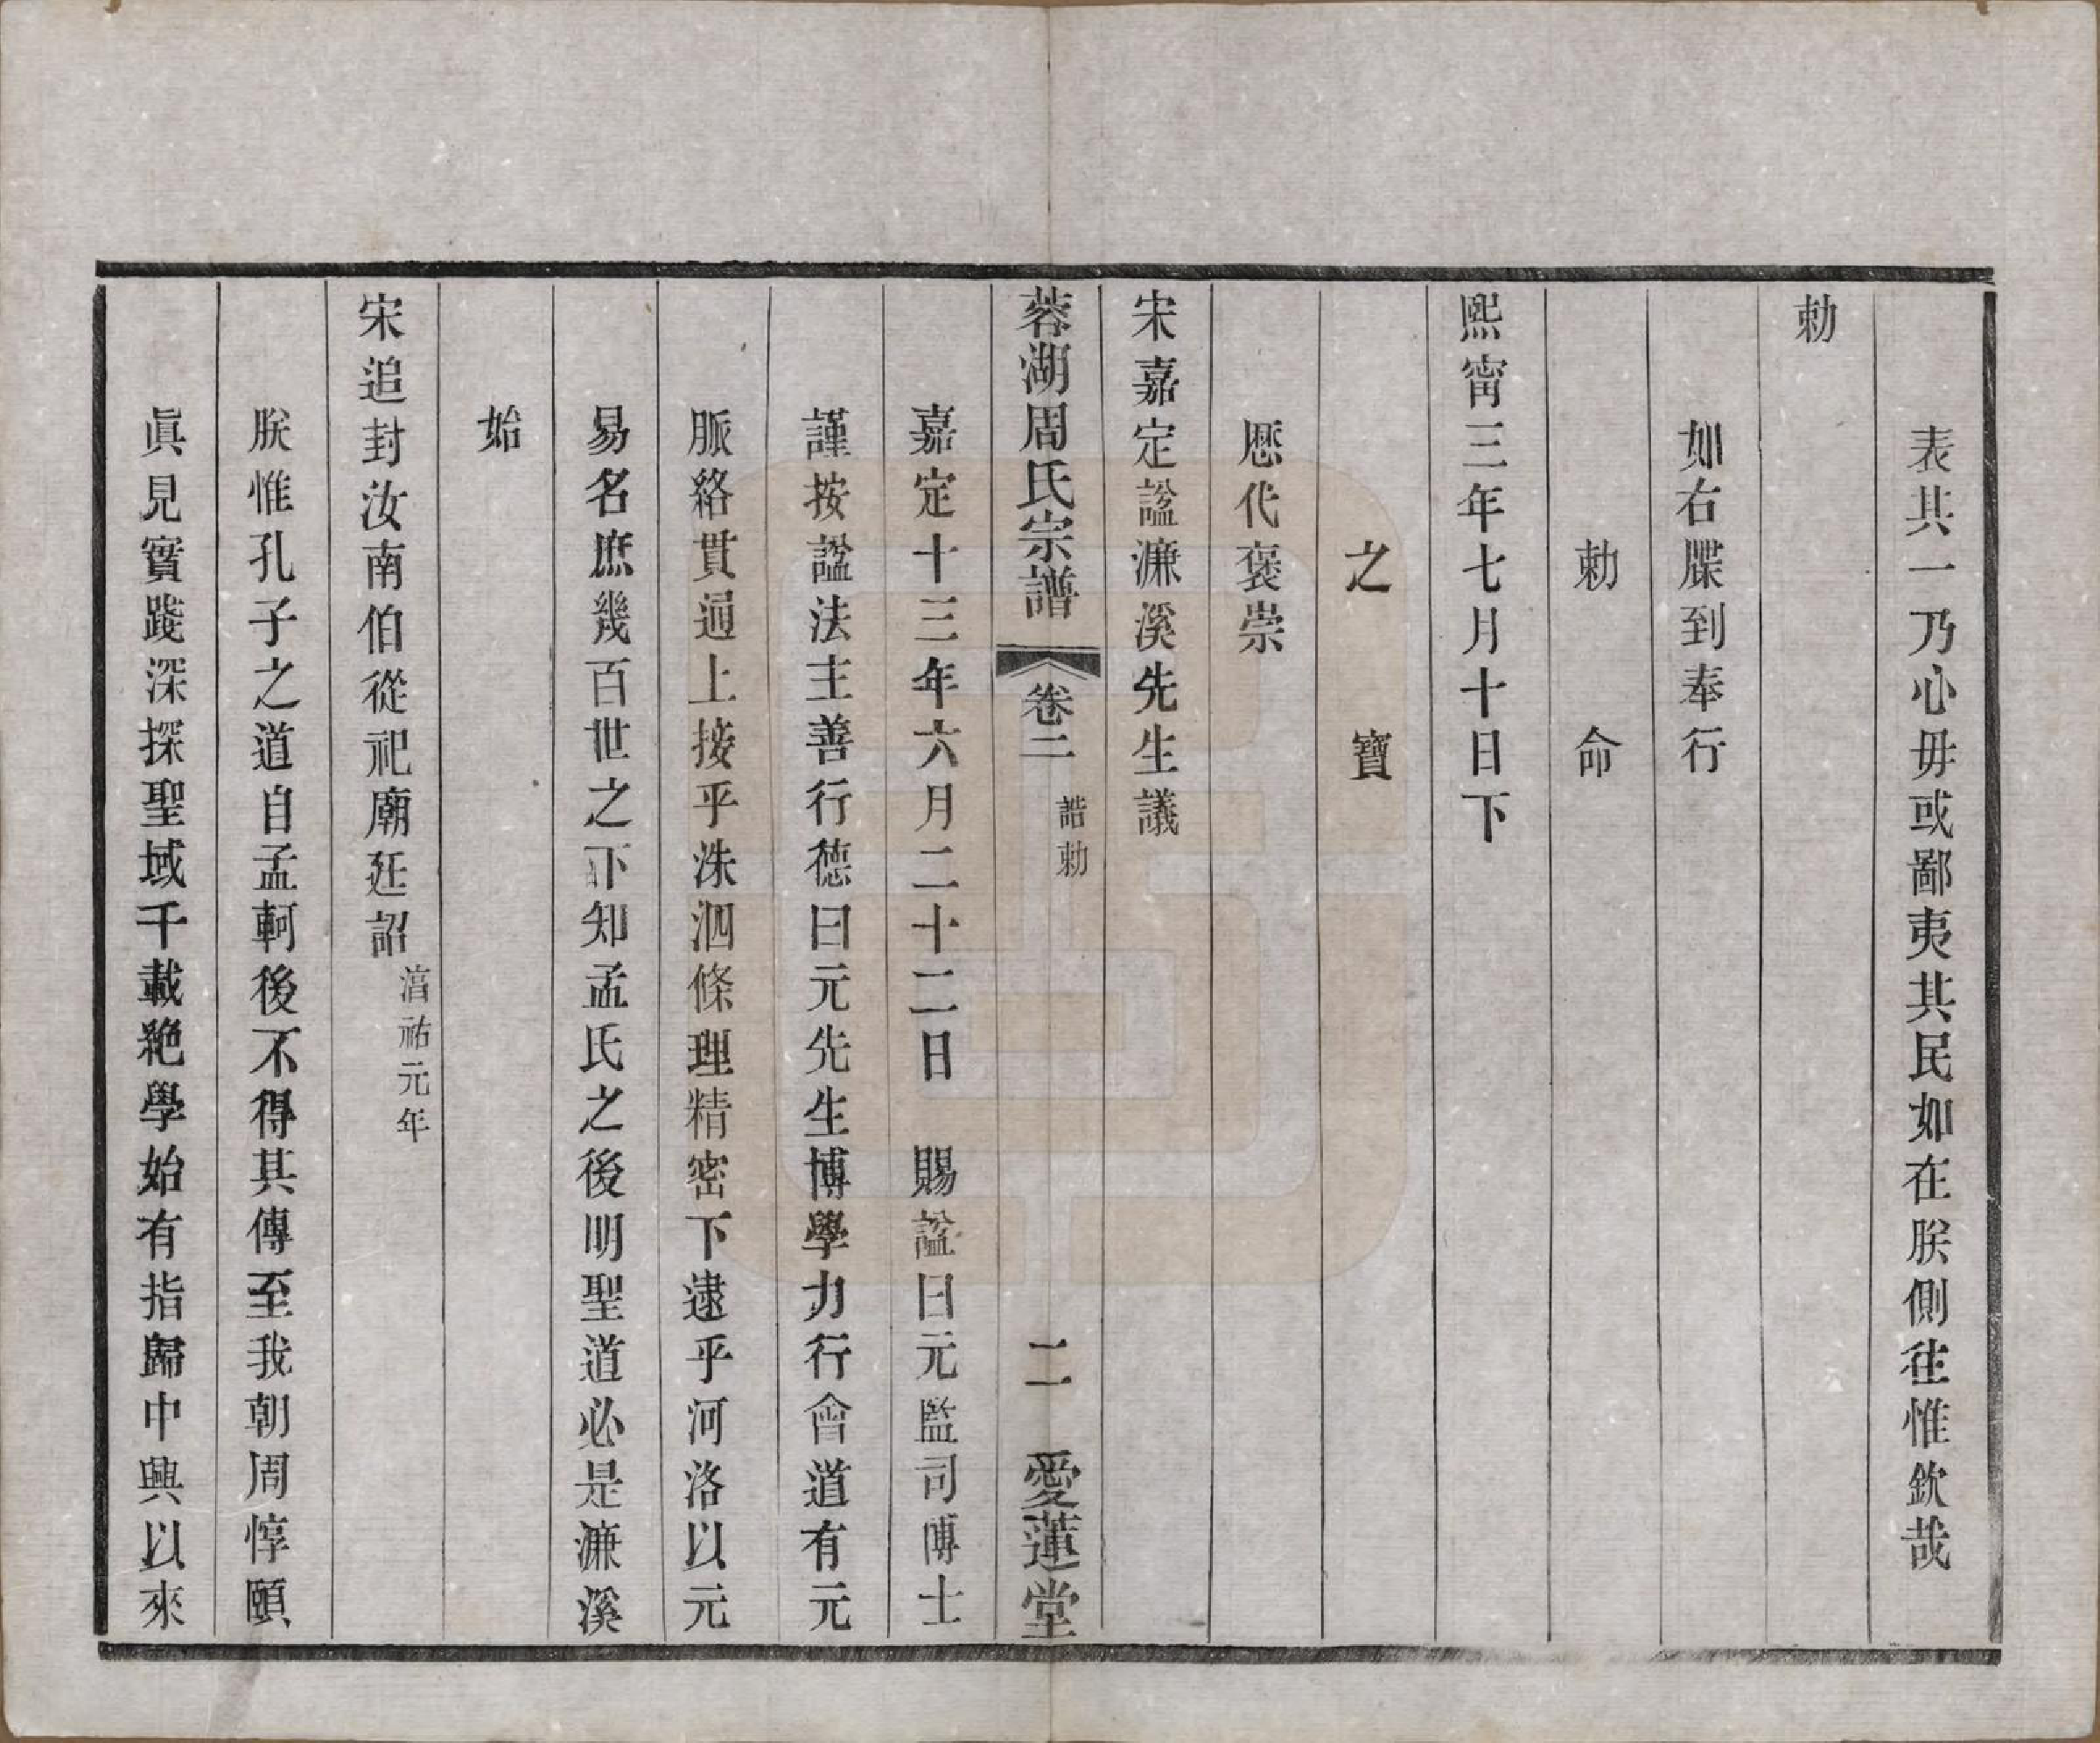 表其一乃心毋或鄙夷其民如在朕側往惟欽哉
勅
如右牒到奉行
勅命
熙甯三年七月十日下
之寶
歷代褒崇
宋嘉定諡濂溪先生議
蓉湖周氏宗譜 卷二 誥勅 二 愛蓮堂
嘉定十三年六月二十二日 賜諡曰元監司博士
謹按諡法主善行德曰元先生博學力行會道有元
脈絡貫通上接乎洙泗條理精密下逮乎河洛以元
易名庶幾百世之下知孟氏之後明聖道必是濂溪
始
宋追封汝南伯從祀廟廷詔 淯祐元年
朕惟孔子之道自孟軻後不得其傳至我朝周惇頤
眞見實踐深探聖域千載絶學始有指歸中興以來